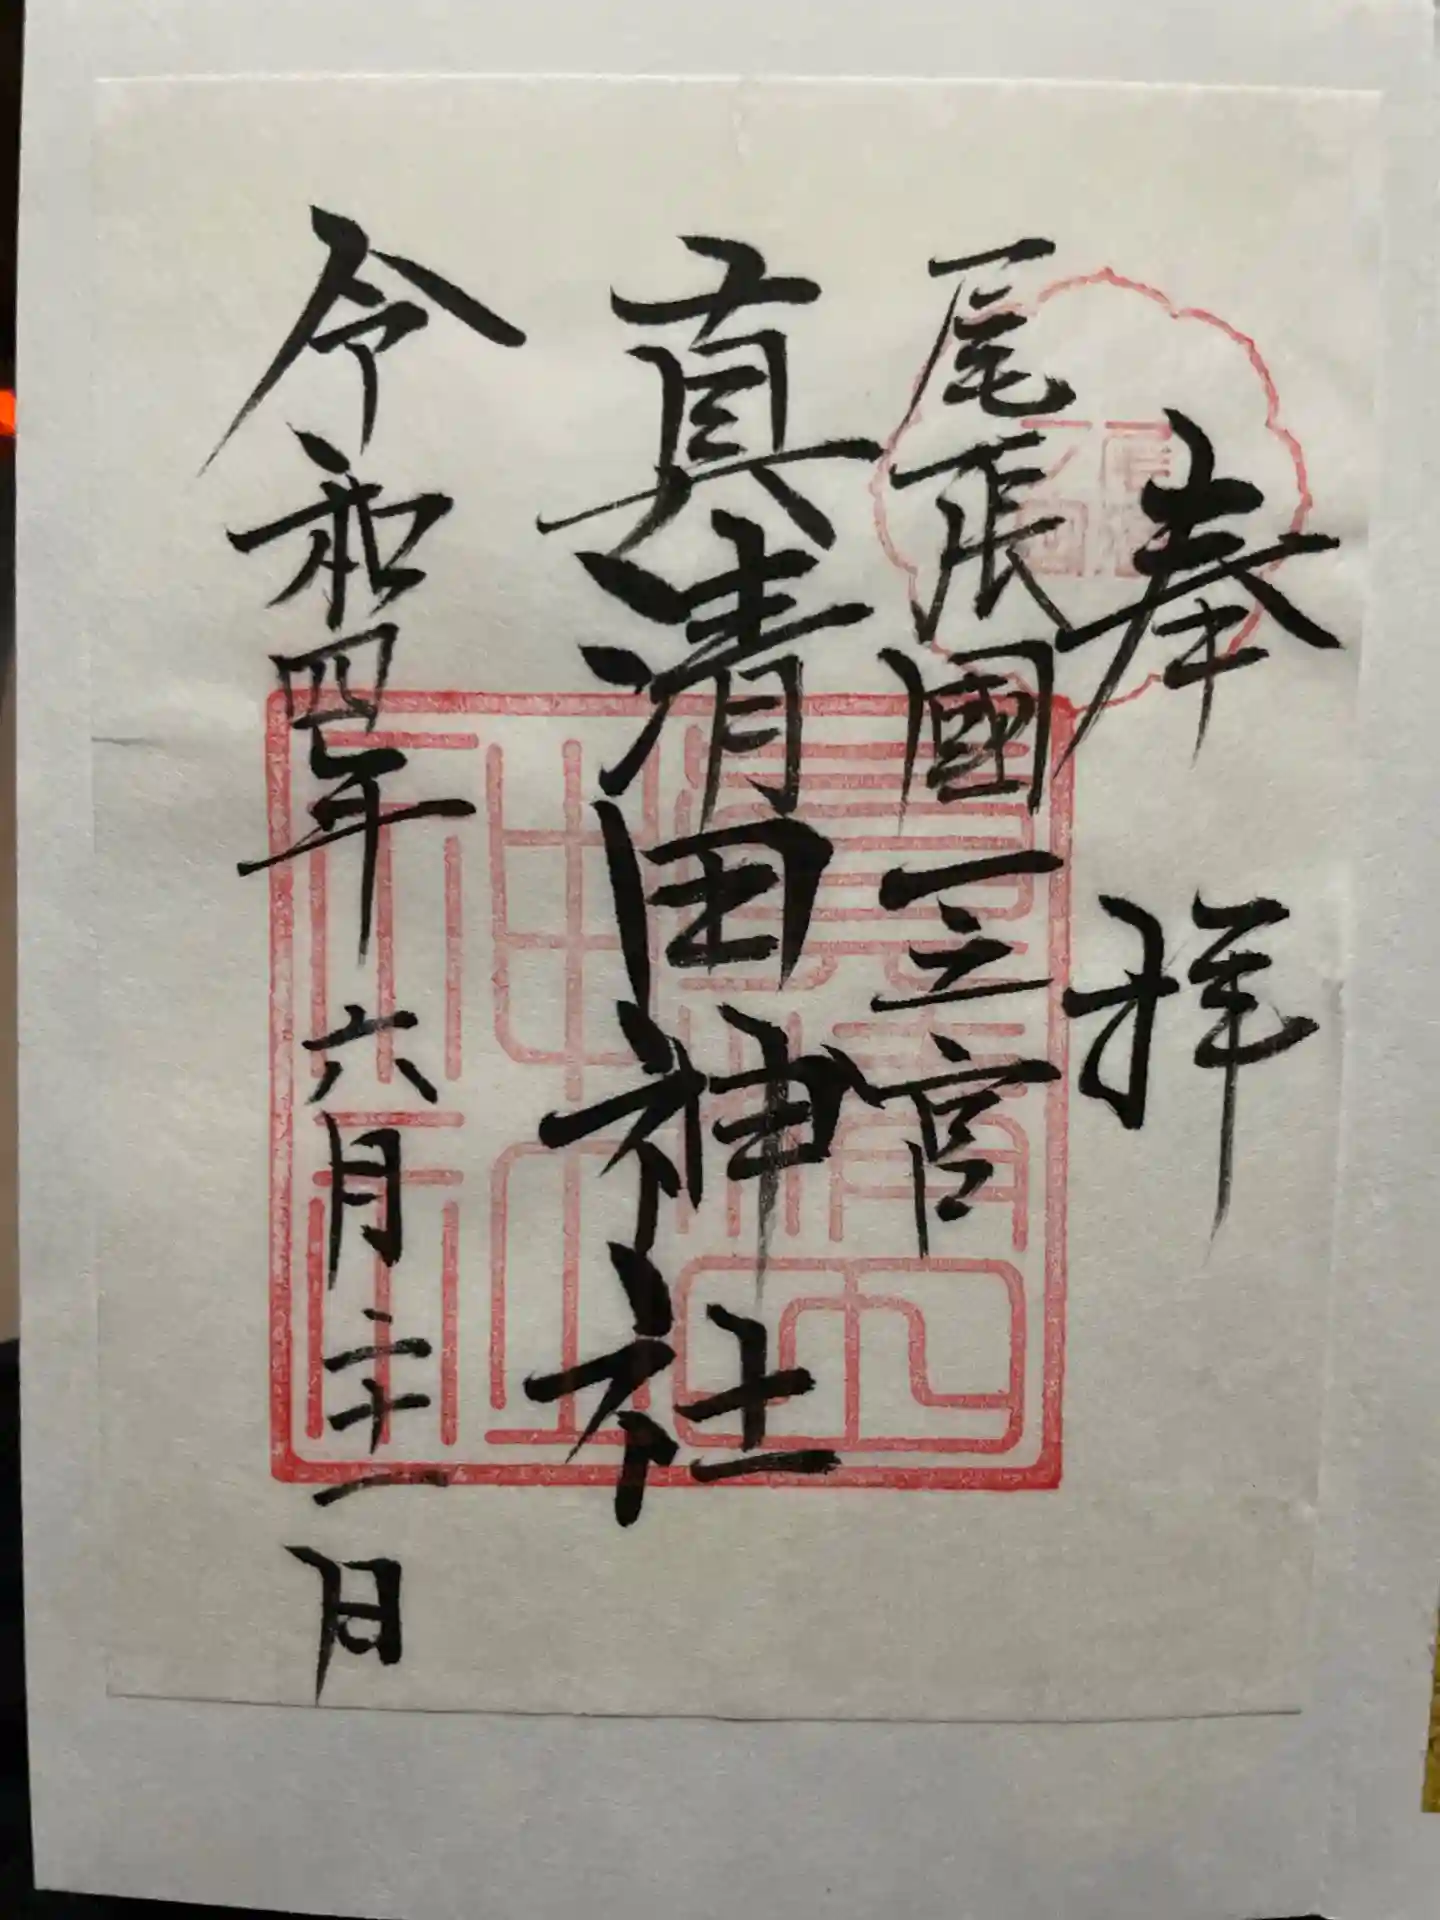 奉拝
尾張國一之宮
真清田神社
令和四年六月二十一日